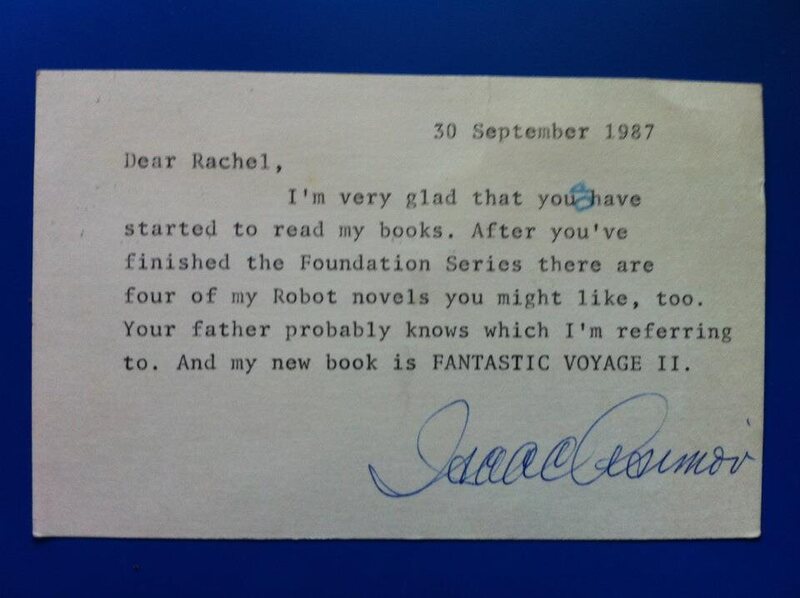 30 September 1987
Dear Rachel,
I'm very glad that you have
started to read my books. After you've
finished the Foundation Series there are
four of my Robot novels you might like, too.
Your father probably knows which I'm referring
to. And my new book is FANTASTIC VOYAGE II.
Isaac Asimov